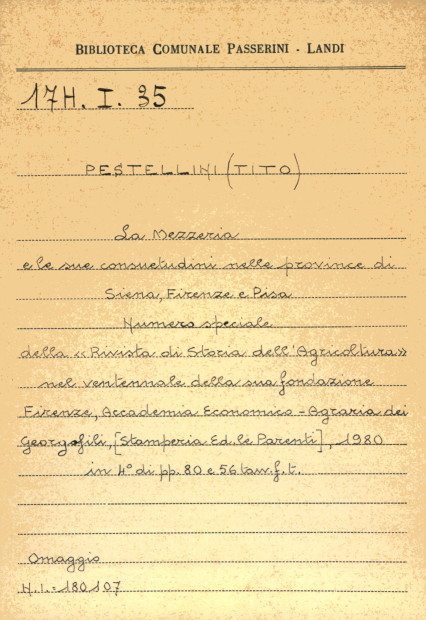 BIBLIOTECA COMUNALE PASSERINI - LANDI
17H. I. 35
PESTELLINI (TITO)
La Mezzeria
e le sue consuetudini nelle province di
Siena, Firenze e Pisa
Numero speciale
della «Rivista di Storia dell'Agricoltura»
nel ventennale della sua fondazione
Firenze, Accademia Economico-Agraria dei
Georgofili, [Stamperia Ed.le Parenti], 1980
in 4° di pp. 80 e 56 tav. f. t.
Omaggio
N.I. = 180107